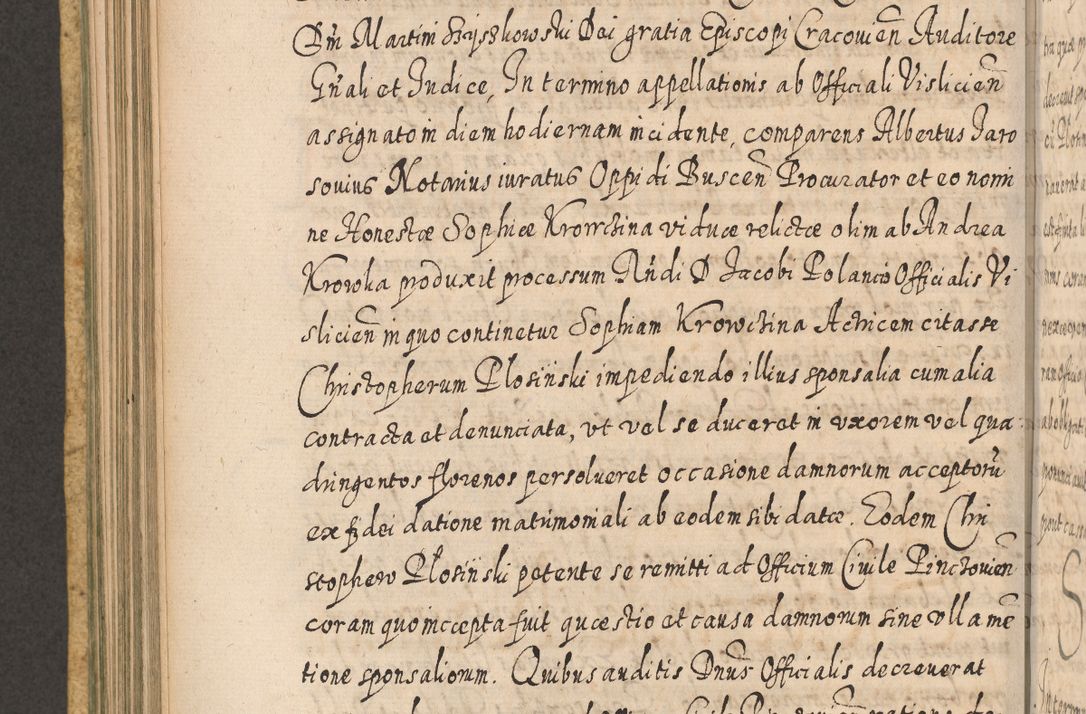 Dñi Martini Szyszkowski Dei gratia Episcopi Cracovieñ Auditore
Gñali et Iudice, In termino appellationis ab Officiali Vislicieñ
assignato in diem hodiernam incidente, comparens Albertus Jaro
sovius Notarius iuratus Oppidi Busceñ Procurator et eo nomi
ne Honestæ Sophiæ Krowczina viduæ relictæ olim ab Andrea
Krowka produxit processum Rñdi D Jacobi Polancio Officialis Vi
slicieñ in quo continetur Sophiam Krowczina Actricem citasse
Christopherum Plosiński impediendo illius sponsalia cum alia
contracta et denunciata, ut vel se duceret in uxorem vel qua
dringentos florenos persolveret occasione damnorum acceptorũ
ex fidei datione matrimoniali ab eodem sibi datæ. Eodem Chri
stophero Plosiński petente se remitti ad Officium Civile Pinczovieñ
coram quo incepta fuit quæstio et causa damnorum sine ulla mẽ
tione sponsaliorum. Quibus auditis Dnus Officialis decreverat